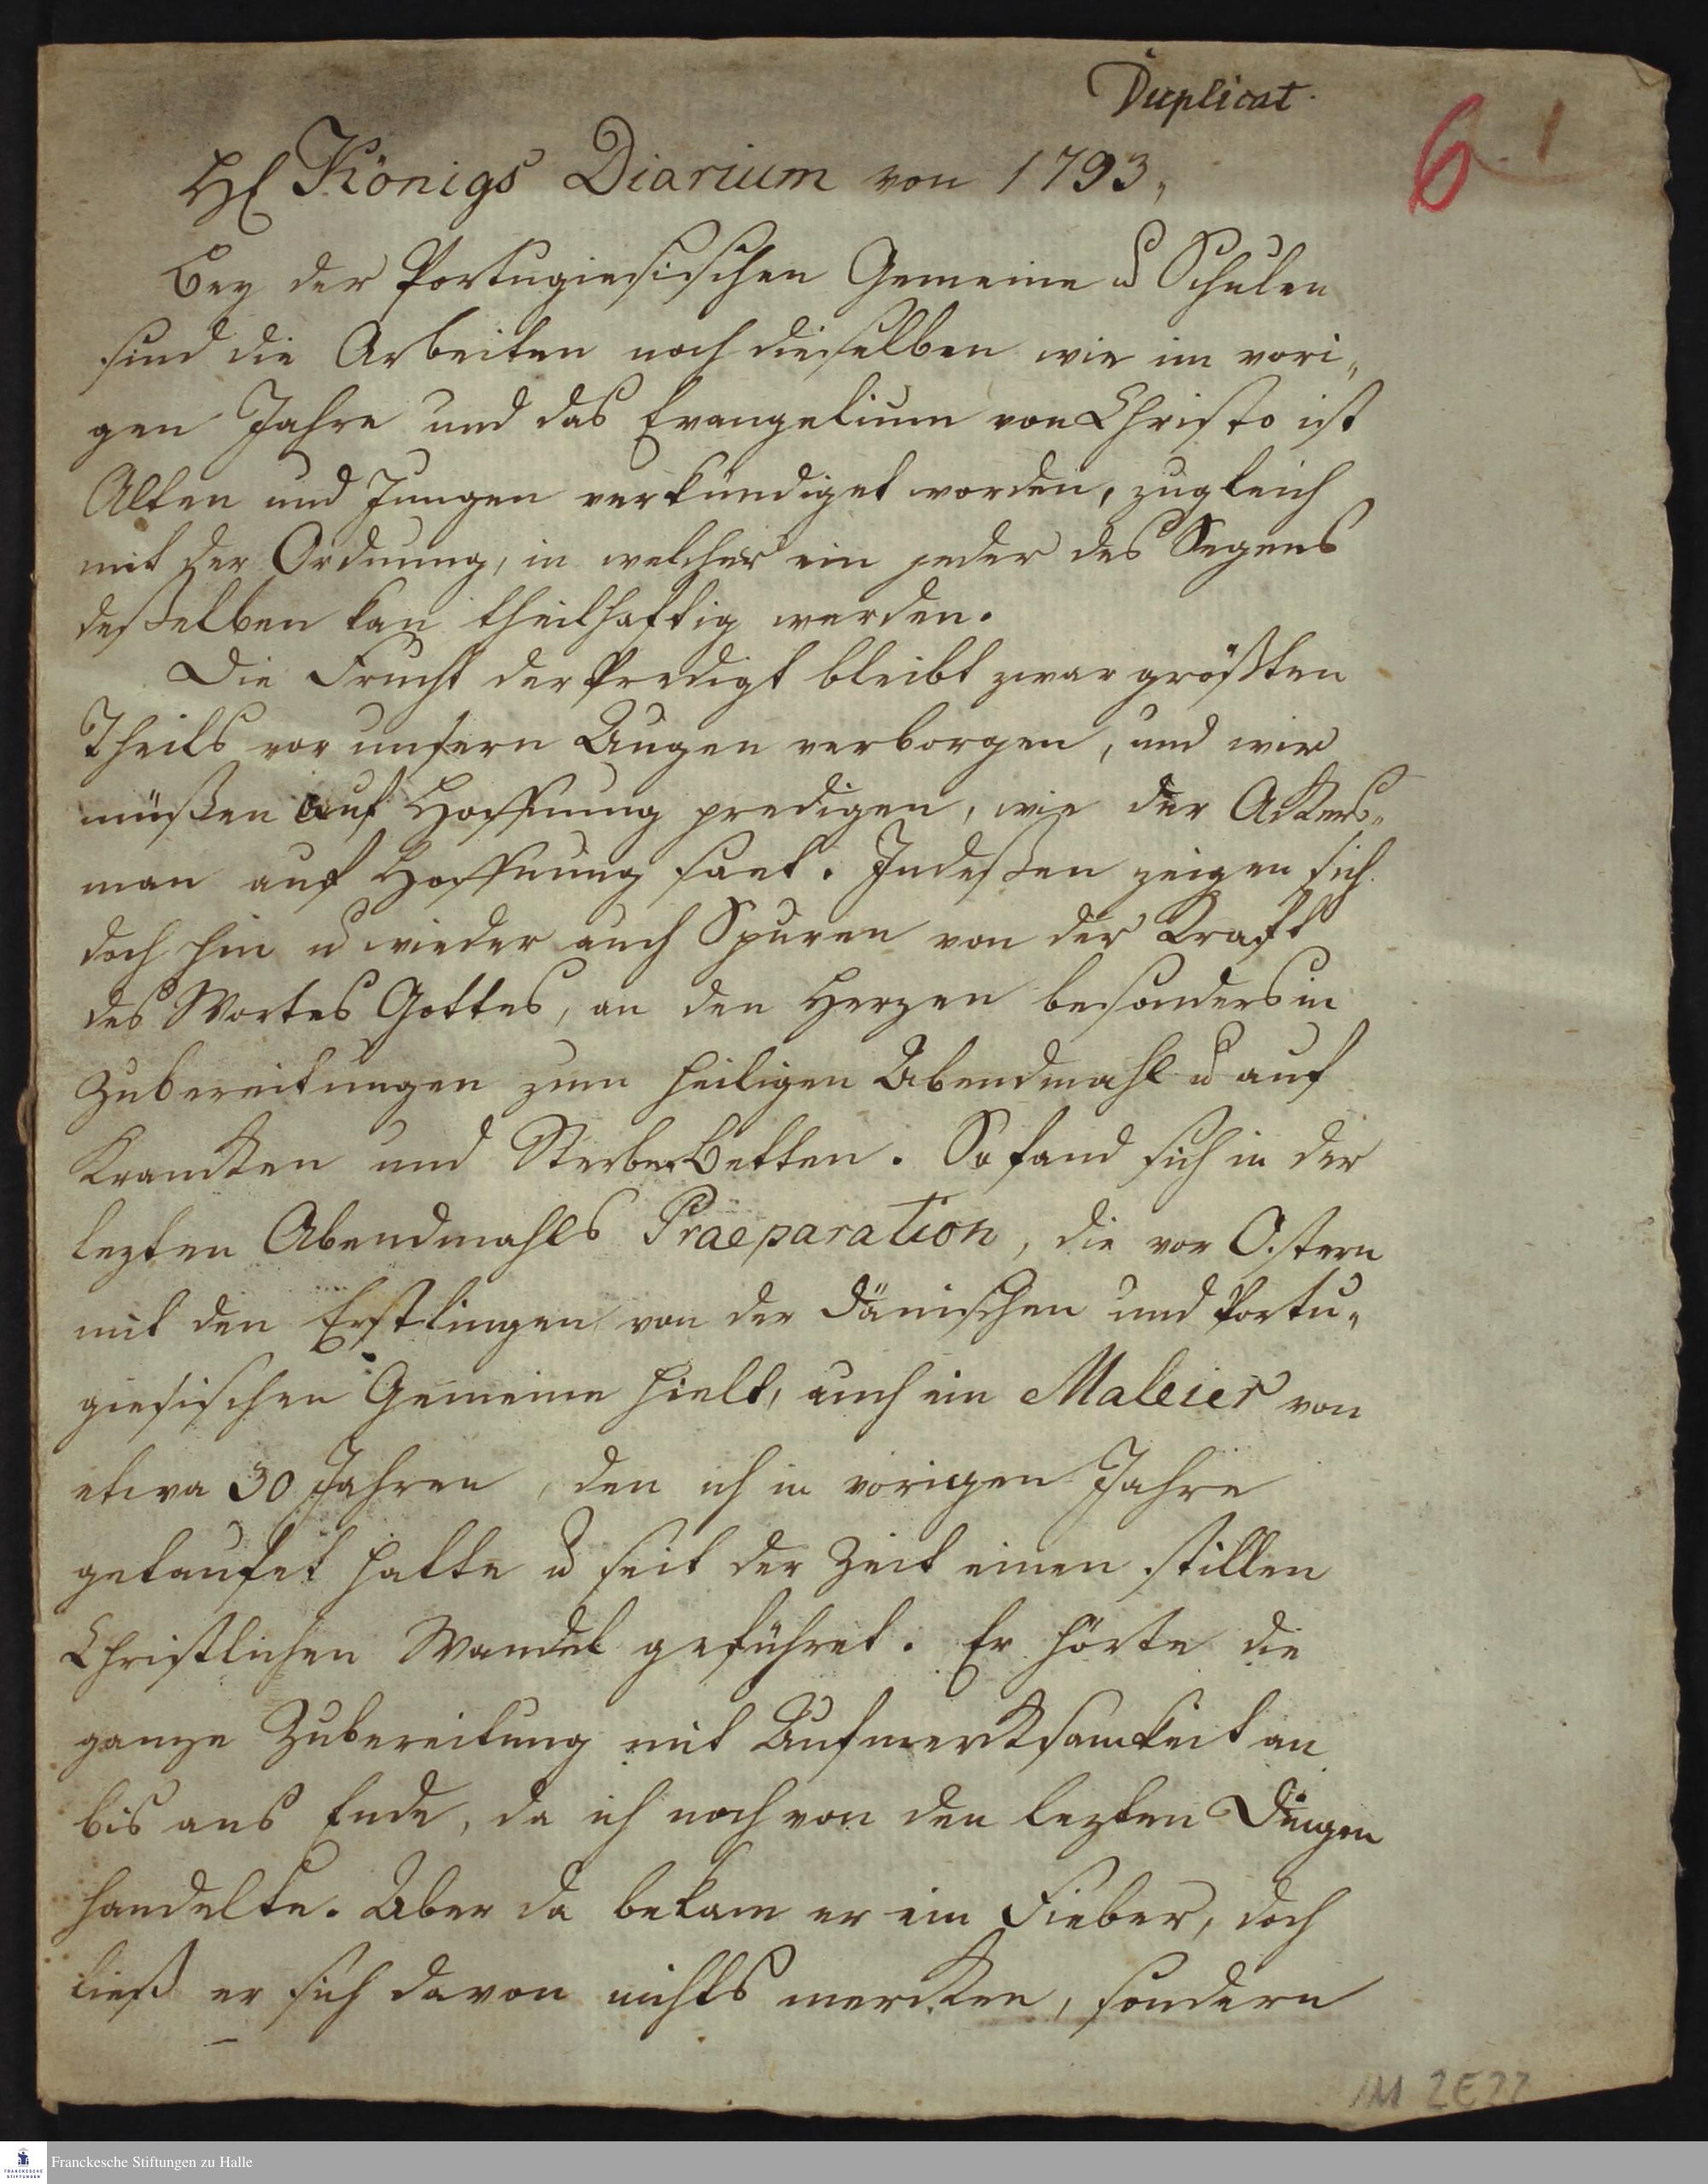 Duplicat.
6
1
H Königs Diarium von 1793,
Bey der Portugiesischen Gemeine u Schulen
sind die Arbeiten noch dieselben wie im vori„
gen Jahre und das Evangelium von Christo ist
Alten und Jungen verkündiget worden, zugleich
mit der Ordnung, in welcher ein jeder des Segens
deßelben kan theilhaftig werden.
Die Frucht der Predigt bleibt zwar größten
Theils vor unsern Augen verborgen, und wir
müßen auf Hoffnung predigen, wie der Ackers„
man auf Hoffnung säet. Indeßen zeigen sich
doch hin u wieder auch Spuren von der Kraft
des Wortes Gottes, an den Herzen besonders in
Zubereitungen zum heiligen Abendmahl u auf
Krancken und SterbeBetten. So fand sich in der
lezten Abendmahls Praeparation, die vor Ostern
mit den Erstlingen von der Dänischen und Portu„
giesischen Gemeine hielt, auch ein Maleier von
etwa 30 Jahren, den ich in vorigen Jahre
getaufet hatte u seit der Zeit einen stillen
Christlichen Wandel geführet. Er hörte die
ganze Zubereitung mit Aufmercksamkeit an
bis ans Ende, da ich noch von den lezten Dingen
handelte. Aber da bekam er ein Fieber, doch
ließ er sich davon nichts mercken, sondern
IM 2E22
Franckesche Stiftungen zu Halle
FRANCKESCHE
STIFTUNGEN